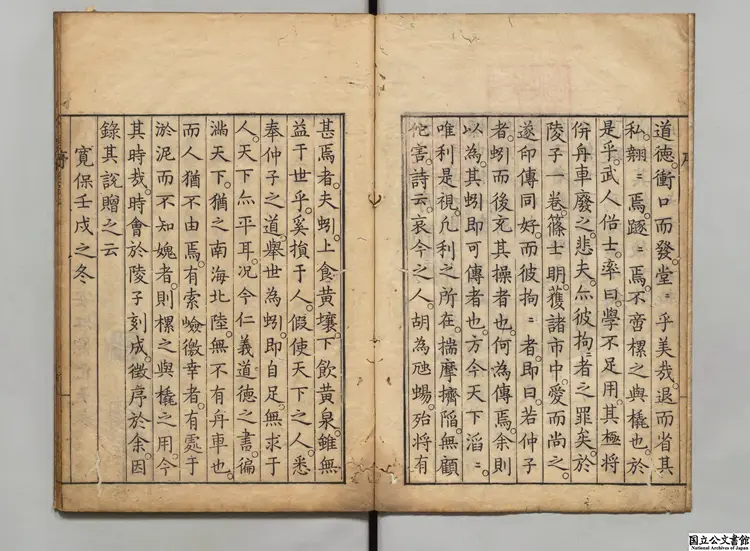 道德。衝口而發。堂〻乎美哉。退而省其
私。翹〻焉。蹊〻焉。不啻樏之與橇也。於
是乎。武人俗士。率曰。學不足用。其極將
併舟車廢之。悲夫。亦彼拘〻者之罪矣。於
陵子一卷。篠士明。獲諸市中。愛而尚之。
遂命傳同好。而彼拘〻者。即曰。若仲子
者。蚓而後充其操者也。何為傳焉。余則
以為。其蚓即可傳者也。方今天下滔〻。
唯利是視。凡利之所在。揣摩擠陷。無顧
佗害。詩云。哀今之人。胡為虺蜴。殆將有
甚焉者。夫蚓。上食黃壤。下飲黃泉。雖無
益于世乎。奚損于人。假使天下之人。悉
奉仲子之道。舉世為蚓。即自足。無求于
人。天下亦平耳。況今仁義道德之書。徧
滿天下。猶之南海北陸。無不有舟車也。
而人猶不由焉。有索嶮徼幸者。有霑于
淤泥而不知媿者。則樏之與橇之用。今
其時哉。時會於陵子刻成。徵序於余。因
錄其說贈之云
寬保壬戌之冬
国立公文書館
National Archives of Japan